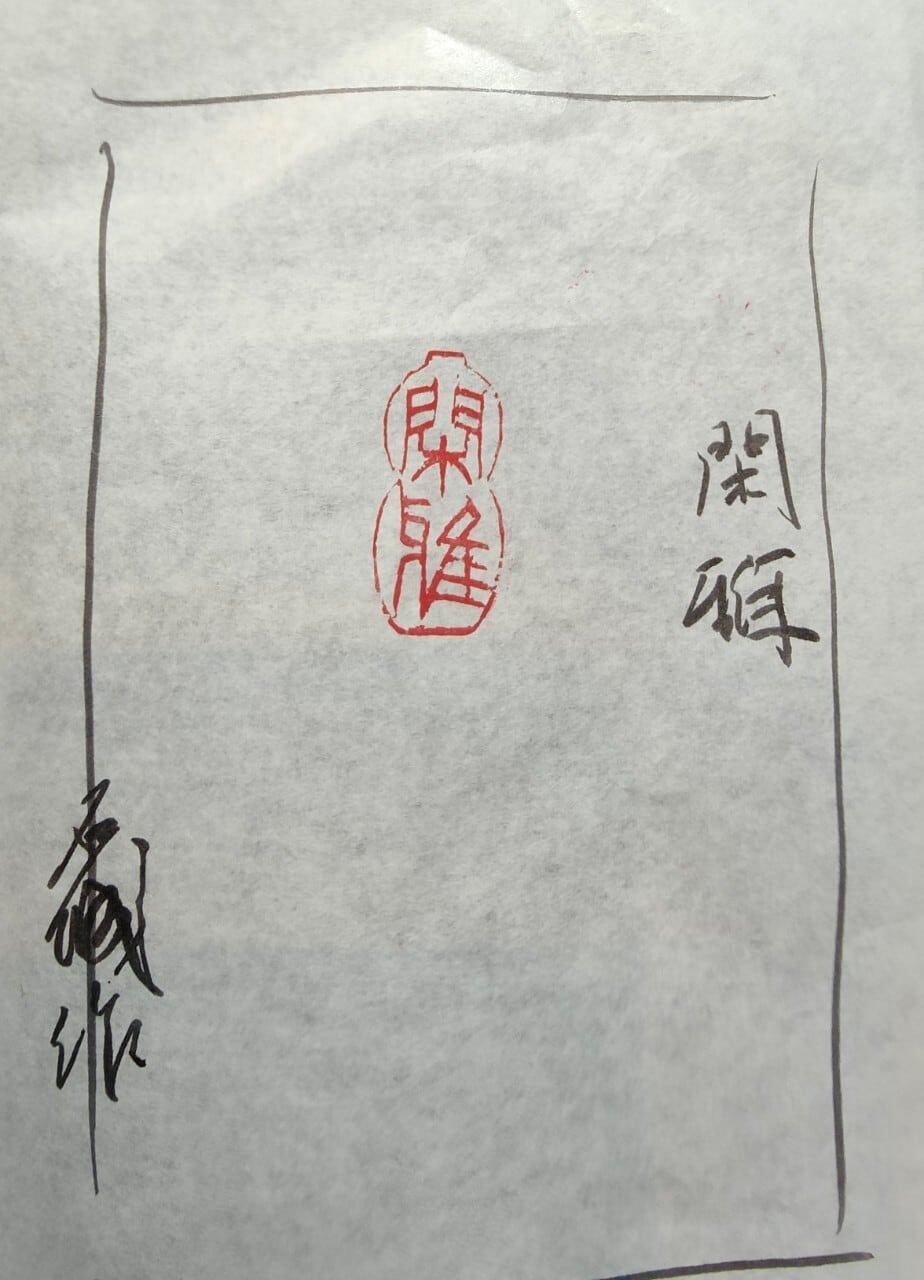 閑雅
閑雅
作